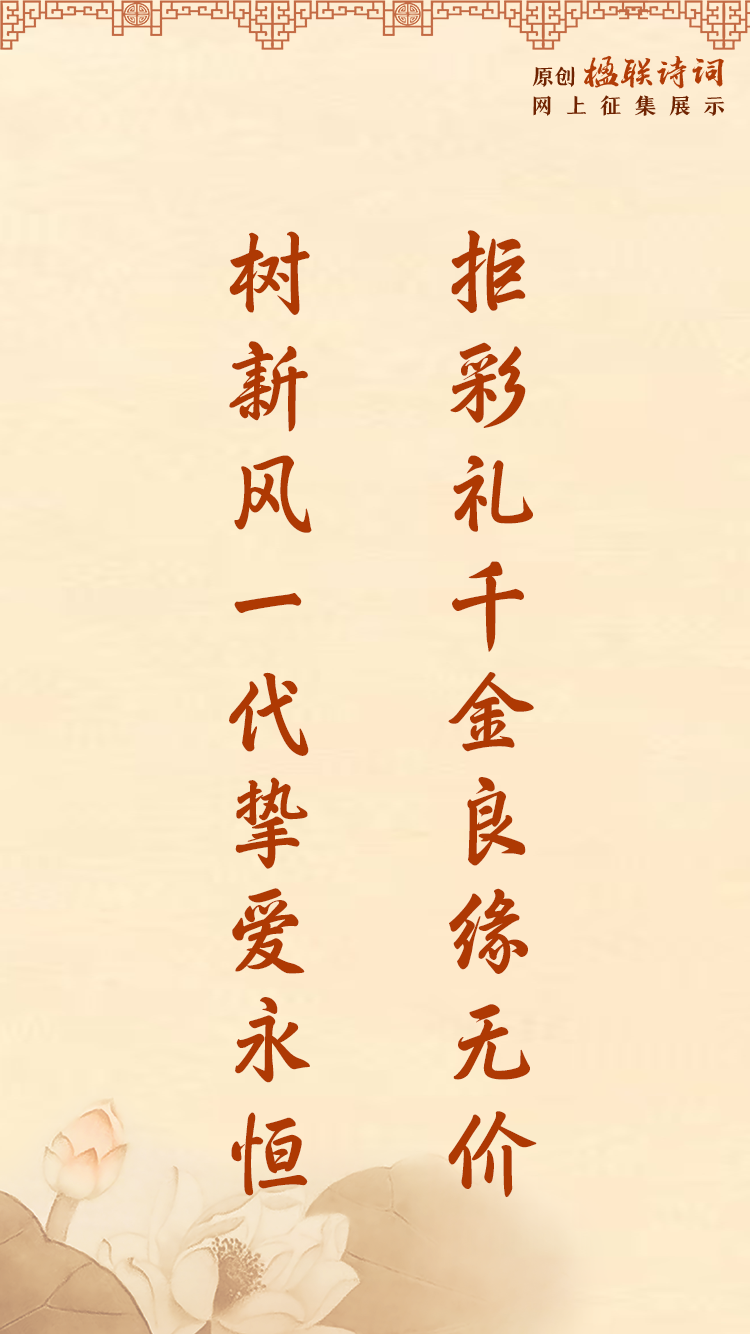 原创 楹联诗词
网上征集展示
拒彩礼千金良缘无价
树新风一代挚爱永恒